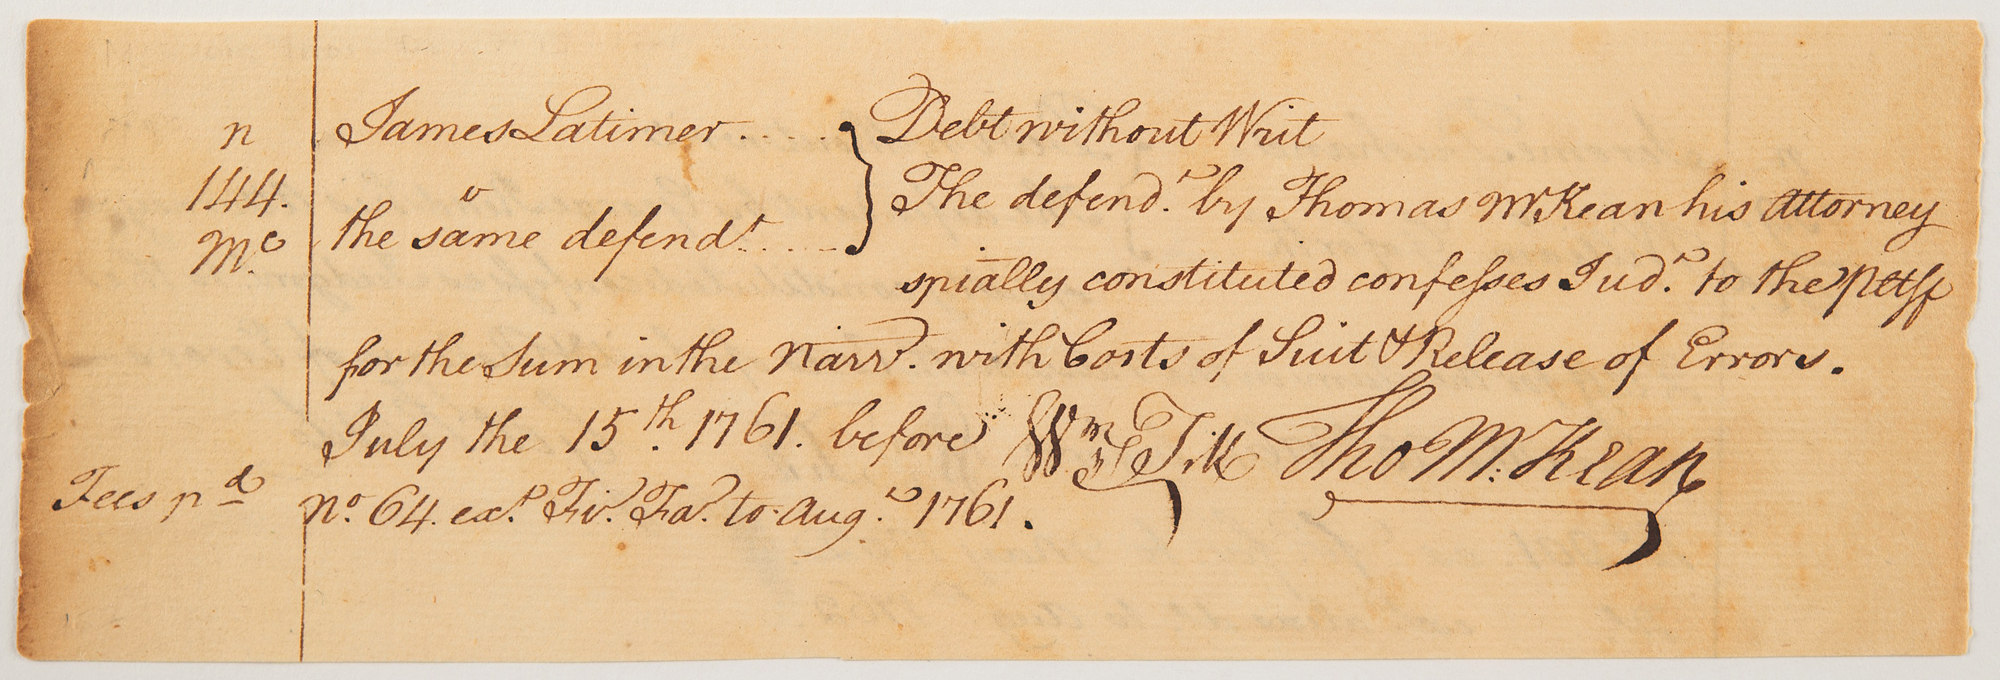 n
144.
Mc.
James Latimer ....
v
the same defendt ....
Debt without Writ
The defendt. by Thomas McKean his Attorney
spially constituted confesses Judt. to the Pltff
for the Sum in the Narr. with Costs of Suit & Release of Errors.
July the 15th. 1761. before Wm Till Tho McKean
Fees pd No. 64. ext. Fi. Fa. to Augt. 1761.